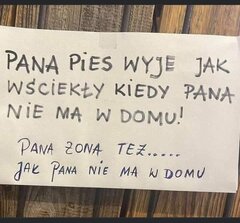 PANA PIES WYJE JAK
WŚCIEKŁY KIEDY PANA
NIE MA W DOMU!
PANA ŻONA TEŻ.....
JAK PANA NIE MA W DOMU